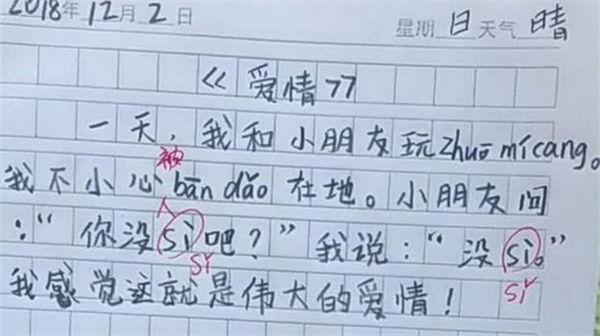 2018年12月2日 星期日天气晴
《爱情》
一天，我和小朋友玩zhuō mícang。
被
我不小心bān dǎo在地。小朋友问
：“你没sì吧？”我说：“没sì。”
sǐ sǐ
我感觉这就是伟大的爱情！